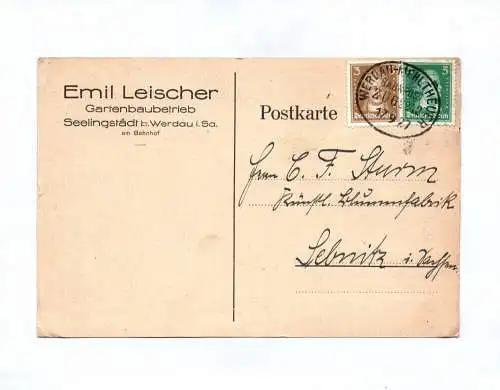 Emil Leischer
Gartenbaubetrieb
Seelingstädt b. Werdau i. Sa.
am Bahnhof
Postkarte
3
5
Deutsches Reich
Deutsches Reich
WERDAU-MEHLTHEUER
Herrn C. F. Sturm
Künstl. Blumenfabrik
Sebnitz i. Sachsen.